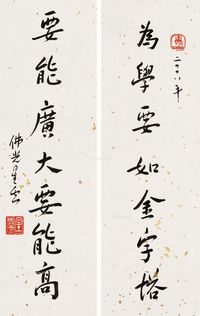 為學要如金字塔
二〇〇八年
要能廣大要能高
佛光星雲